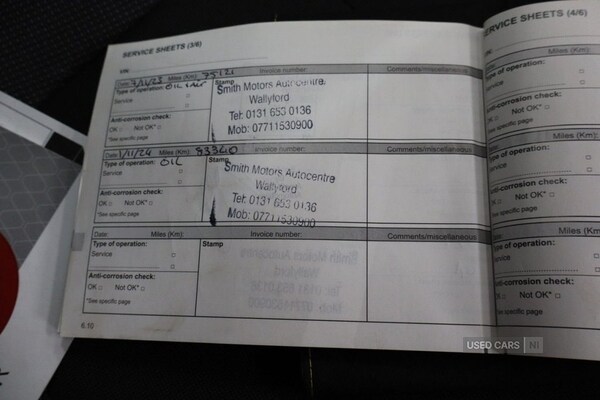 SERVICE SHEETS (3/6)
VIN:
Date: Miles (Km): Invoice number: Comments/miscellaneous
Type of operation: OIL Stamp
Service
Smith Motors Autocentre
Wallyford
Tel: 0131 653 0136
Mob: 07711530900
Anti-corrosion check:
OK Not OK*
*See specific page
Date 1/11/24 Miles (Km): 93340 Invoice number: Comments/miscellaneous
Type of operation: OIL Stamp
Service
Smith Motors Autocentre
Wallyford
Tel: 0131 653 0136
Mob: 07711530900
Anti-corrosion check:
OK Not OK*
*See specific page
Date: Miles (Km): Invoice number: Comments/miscellaneous
Type of operation: Stamp
Service
Anti-corrosion check:
OK Not OK*
*See specific page
6.10
SERVICE SHEETS (4/6)
VIN:
Miles (Km):
Type of operation:
Service
Anti-corrosion check:
OK Not OK*
*See specific page
Miles (Km):
Type of operation:
Service
Anti-corrosion check:
OK Not OK*
*See specific page
Miles (Km
Type of operation:
Service
Anti-corrosion check:
Not OK*
*See specific page
USED CARS NI